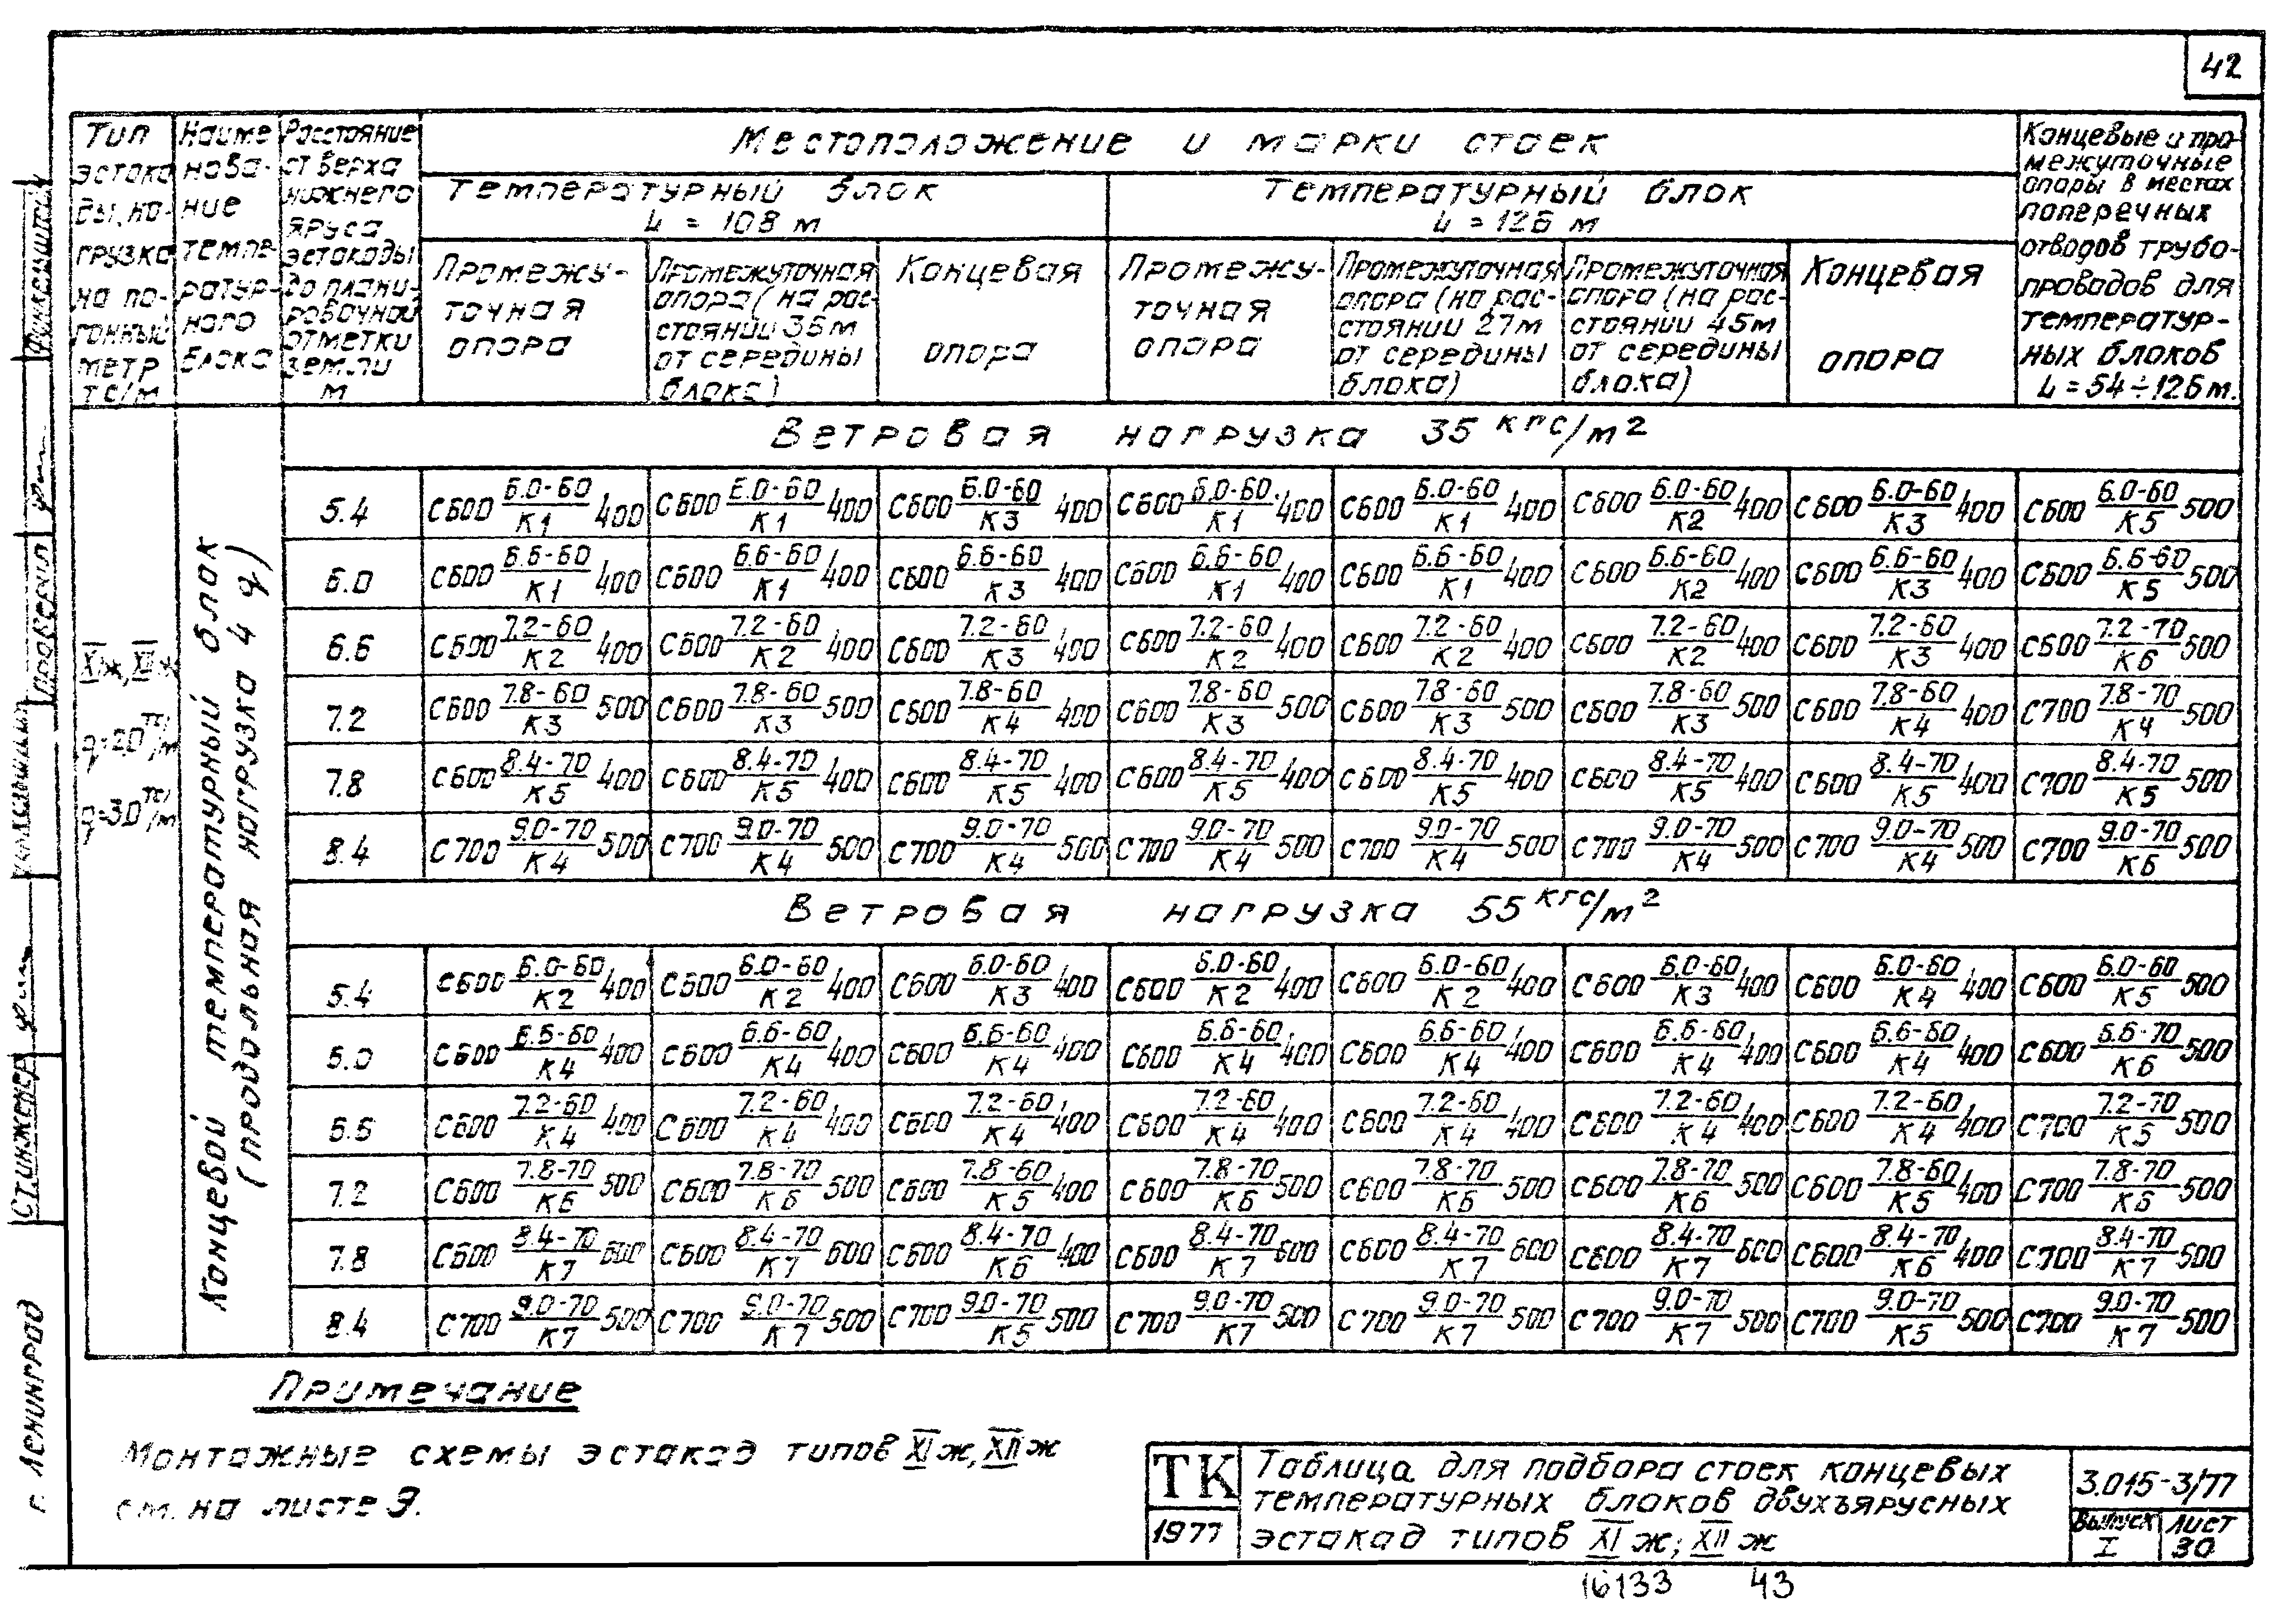 42
Тип эстакады, нагрузка на погонный метр тс/м
Наименование температурного блока
Расстояние от верха нижнего яруса эстакады до планировочной отметки земли м
Местоположение и марки стоек
Температурный блок L = 108 м
Температурный блок L = 126 м
Концевые и промежуточные опоры в местах поперечных отводов трубопроводов для температурных блоков L = 54÷126 м.
Промежуточная опора
Промежуточная опора (на расстоянии 36м от середины блока)
Концевая опора
Промежуточная опора
Промежуточная опора (на расстоянии 27м от середины блока)
Промежуточная опора (на расстоянии 45м от середины блока)
Концевая опора
XIж, XIIж
q=2.0 тс/м
q=3.0 тс/м
Концевой температурный блок
(продольная нагрузка 4 q)
Ветровая нагрузка 35 кгс/м²
5.4 | С600 6.0-60/К1 400 | С600 6.0-60/К1 400 | С600 6.0-60/К3 400 | С600 6.0-60/К1 400 | С600 6.0-60/К1 400 | С600 6.0-60/К2 400 | С600 6.0-60/К3 400 | С600 6.0-60/К5 500
6.0 | С600 6.6-60/К1 400 | С600 6.6-60/К1 400 | С600 6.6-60/К3 400 | С600 6.6-60/К1 400 | С600 6.6-60/К1 400 | С600 6.6-60/К2 400 | С600 6.6-60/К3 400 | С600 6.6-60/К5 500
6.6 | С600 7.2-60/К2 400 | С600 7.2-60/К2 400 | С600 7.2-60/К3 400 | С600 7.2-60/К2 400 | С600 7.2-60/К2 400 | С600 7.2-60/К2 400 | С600 7.2-60/К3 400 | С600 7.2-70/К6 500
7.2 | С600 7.8-60/К3 500 | С600 7.8-60/К3 500 | С600 7.8-60/К4 400 | С600 7.8-60/К3 500 | С600 7.8-60/К3 500 | С600 7.8-60/К3 500 | С600 7.8-60/К4 400 | С700 7.8-70/К4 500
7.8 | С600 8.4-70/К5 400 | С600 8.4-70/К5 400 | С600 8.4-70/К5 400 | С600 8.4-70/К5 400 | С600 8.4-70/К5 400 | С600 8.4-70/К5 400 | С600 8.4-70/К5 400 | С700 8.4-70/К5 500
8.4 | С700 9.0-70/К4 500 | С700 9.0-70/К4 500 | С700 9.0-70/К4 500 | С700 9.0-70/К4 500 | С700 9.0-70/К4 500 | С700 9.0-70/К4 500 | С700 9.0-70/К4 500 | С700 9.0-70/К6 500
Ветровая нагрузка 55 кгс/м²
5.4 | С600 6.0-60/К2 400 | С600 6.0-60/К2 400 | С600 6.0-60/К3 400 | С600 6.0-60/К2 400 | С600 6.0-60/К2 400 | С600 6.0-60/К3 400 | С600 6.0-60/К4 400 | С600 6.0-60/К5 500
6.0 | С600 6.6-60/К4 400 | С600 6.6-60/К4 400 | С600 6.6-60/К4 400 | С600 6.6-60/К4 400 | С600 6.6-60/К4 400 | С600 6.6-60/К4 400 | С600 6.6-60/К4 400 | С600 6.6-70/К6 500
6.6 | С600 7.2-60/К4 400 | С600 7.2-60/К4 400 | С600 7.2-60/К4 400 | С600 7.2-60/К4 400 | С600 7.2-60/К4 400 | С600 7.2-60/К4 400 | С600 7.2-60/К4 400 | С700 7.2-70/К5 500
7.2 | С600 7.8-70/К6 500 | С600 7.8-70/К6 500 | С600 7.8-60/К5 400 | С600 7.8-70/К6 500 | С600 7.8-70/К6 500 | С600 7.8-70/К6 500 | С600 7.8-60/К5 400 | С700 7.8-70/К6 500
7.8 | С600 8.4-70/К7 600 | С600 8.4-70/К7 600 | С600 8.4-70/К6 400 | С600 8.4-70/К7 600 | С600 8.4-70/К7 600 | С600 8.4-70/К7 600 | С600 8.4-70/К6 400 | С700 8.4-70/К7 500
8.4 | С700 9.0-70/К7 500 | С700 9.0-70/К7 500 | С700 9.0-70/К5 500 | С700 9.0-70/К7 500 | С700 9.0-70/К7 500 | С700 9.0-70/К7 500 | С700 9.0-70/К5 500 | С700 9.0-70/К7 500
Примечание
Монтажные схемы эстакад типов XIж, XIIж
см. на листе 9.
ТК
1977
Таблица для подбора стоек концевых
температурных блоков двухъярусных
эстакад типов XIж; XIIж
3.015-3/77
Выпуск I
Лист 30
16133 43
г. Ленинград
Ст.инженер
Проверил